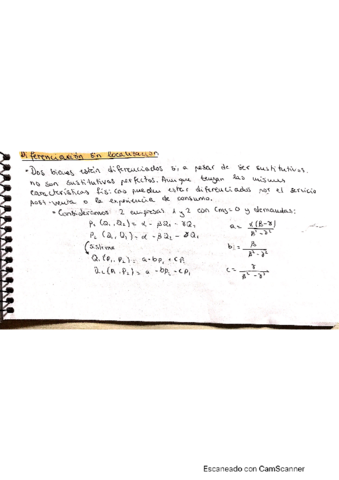 Diferenciación sin localización
• Dos bienes están diferenciados si a pesar de ser sustitutivos,
no son sustitutivos perfectos. Aunque tengan las mismas
características físicas pueden estar diferenciados por el servicio
post-venta o la experiencia de consumo.
• Consideramos: 2 empresas 1 y 2 con Cmg=0 y demandas:
P₁(Q₁,Q₂) = α - βQ₁ - γQ₂ a = α(β-γ)/β²-γ²
P₂(Q₁,Q₂) = α - βQ₂ - γQ₁ b = β/β²-γ²
Q₁(P₁,P₂) = a - bP₁ + cP₂
Q₂(P₁,P₂) = a - bP₂ + cP₁ c = γ/β²-γ²
Escaneado con CamScanner